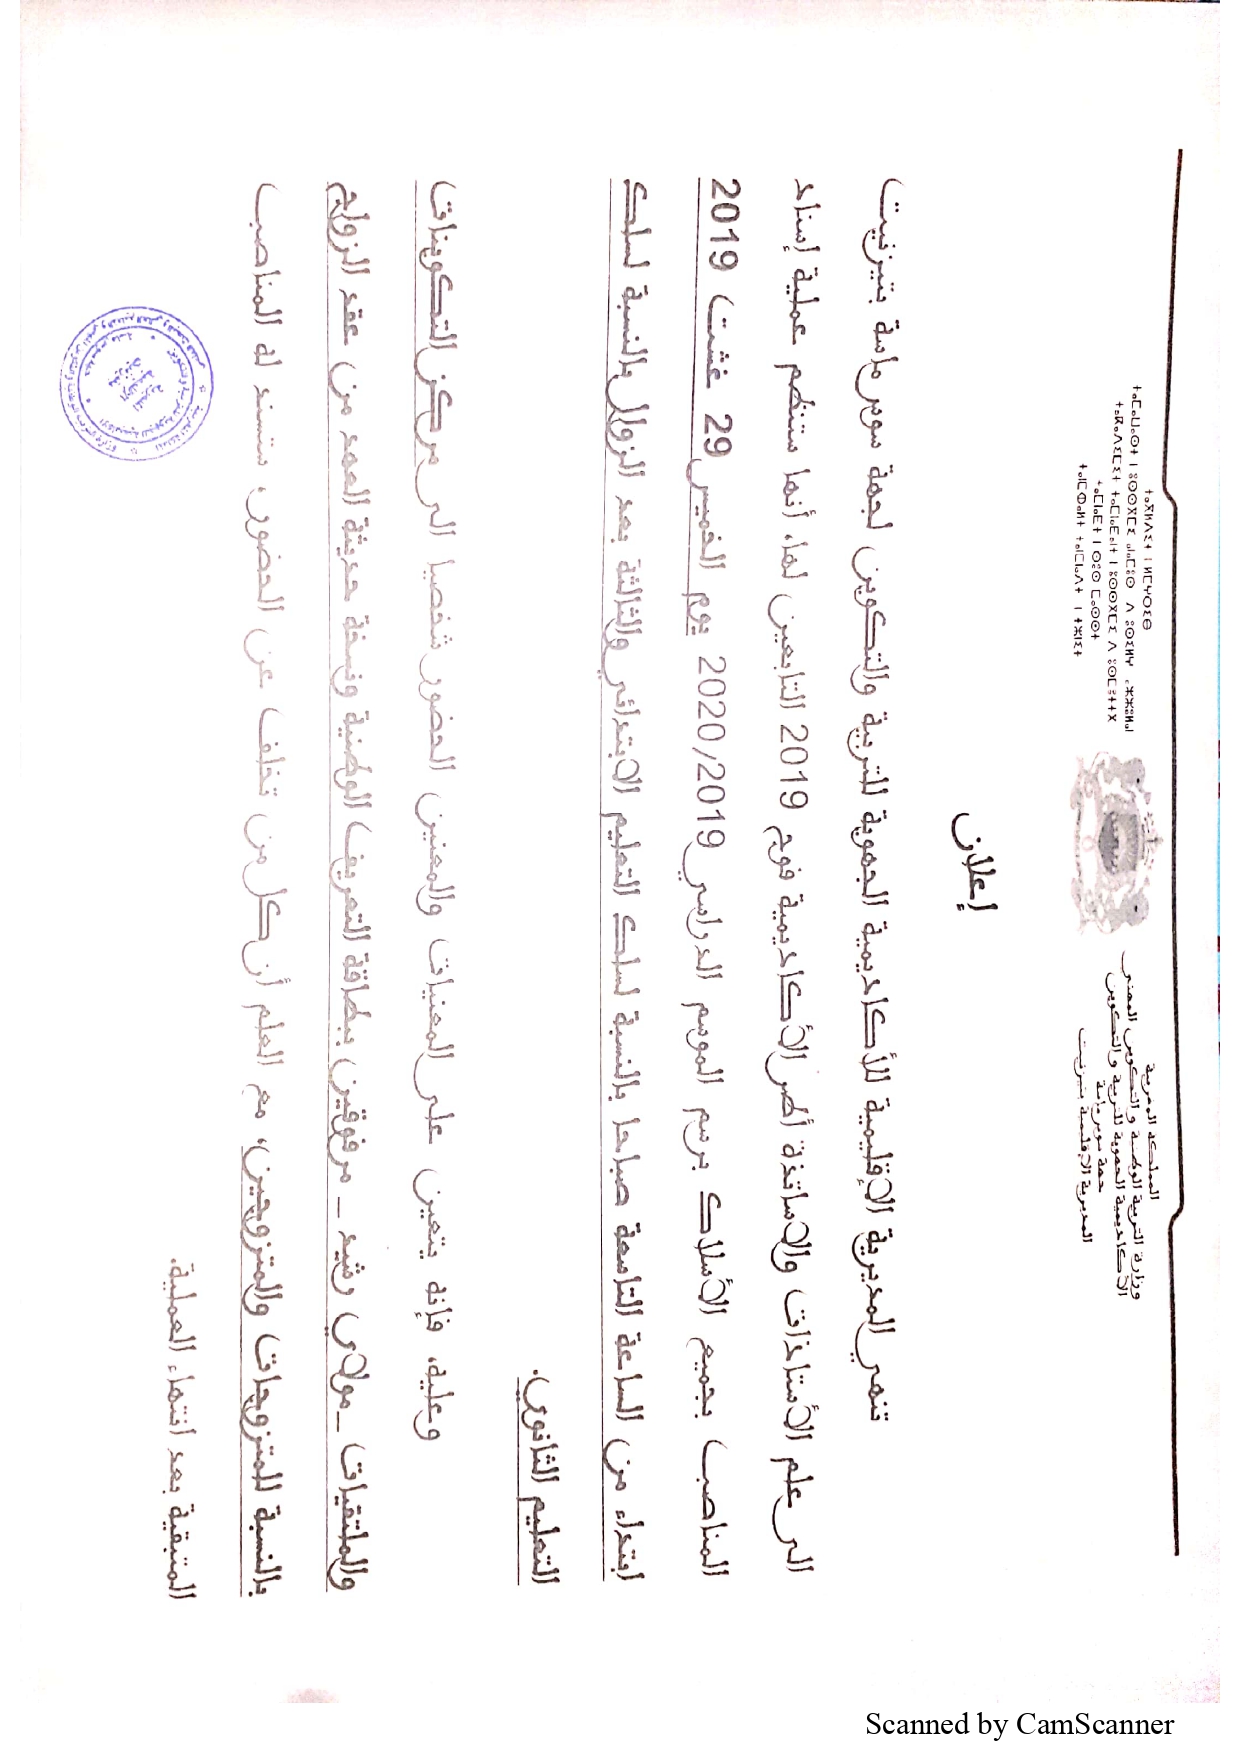 المملكة المغربية
وزارة التربية الوطنية والتكوين المهني
الأكاديمية الجهوية للتربية والتكوين
جهة سوس ماسة
المديرية الإقليمية بتيزنيت
ⵜⴰⴳⵍⴷⵉⵜ ⵏ ⵍⵎⵖⵔⵉⴱ
إعلان
تنهي المديرية الإقليمية للأكاديمية الجهوية للتربية والتكوين لجهة سوس ماسة بتيزنيت
الى علم الأستاذات والاساتذة أطر الأكاديمية فوج 2019 التابعين لها، أنها ستنظم عملية إسناد
المناصب بجميع الأسلاك برسم الموسم الدراسي 2020/2019 يوم الخميس 29 غشت 2019
ابتداء من الساعة التاسعة صباحا بالنسبة لسلك التعليم الابتدائي والثالثة بعد الزوال بالنسبة لسلك
التعليم الثانوي.
وعليه، فإنه يتعين على المعنيات والمعنيين الحضور شخصيا الى مركز التكوينات
والملتقيات _مولاي رشيد _ مرفوقين ببطاقة التعريف الوطنية ونسخة حديثة العهد من عقد الزواج
بالنسبة للمتزوجات والمتزوجين، مع العلم أن كل من تخلف عن الحضور، ستسند له المناصب
المتبقية بعد انتهاء العملية.
Scanned by CamScanner